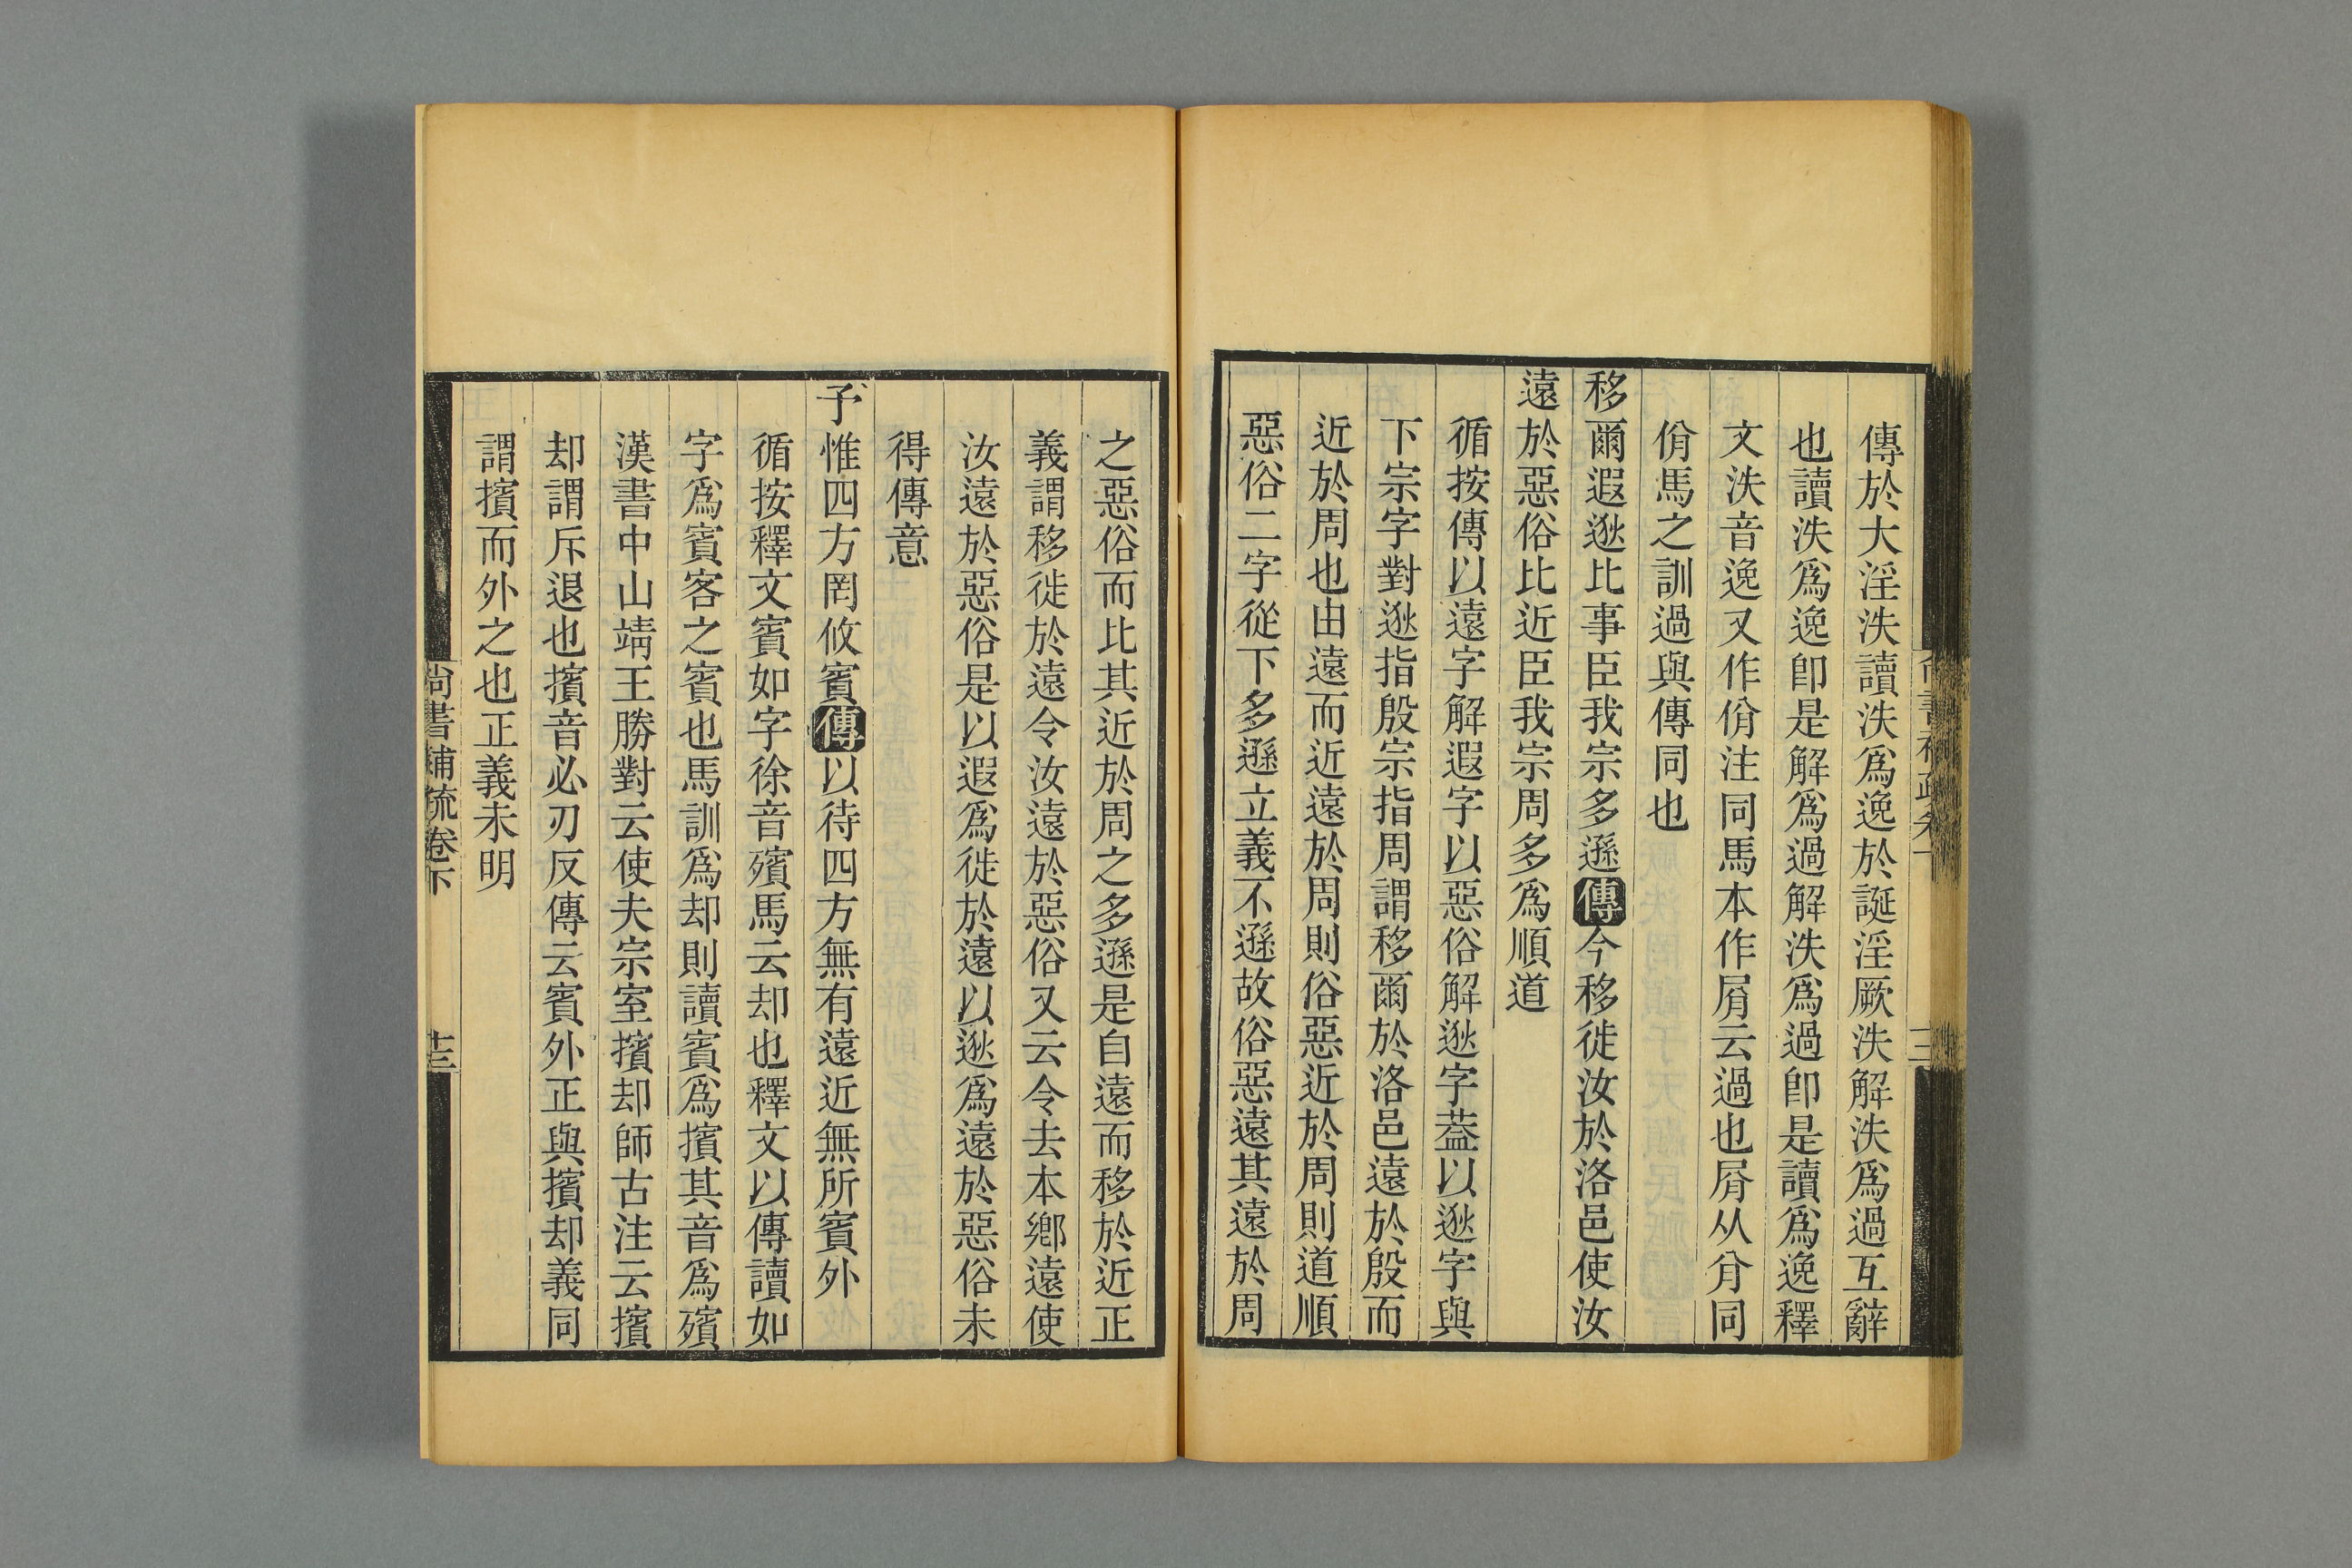 傳於大淫泆讀泆爲逸於誕淫厥泆解泆爲過互辭
也讀泆爲逸卽是解爲過解泆爲過卽是讀爲逸釋
文泆音逸又作佾注同馬本作屑云過也屑从㑞同
佾馬之訓過與傳同也
移爾遐逖比事臣我宗多遜傳今移徙汝於洛邑使汝
遠於惡俗比近臣我宗周多爲順道
循按傳以遠字解遐字以惡俗解逖字葢以逖字與
下宗字對逖指殷宗指周謂移爾於洛邑遠於殷而
近於周也由遠而近遠於周則俗惡近於周則道順
惡俗二字從下多遜立義不遜故俗惡遠其遠於周
之惡俗而比其近於周之多遜是自遠而移於近正
義謂移徙於遠令汝遠於惡俗又云令去本鄕遠使
汝遠於惡俗是以遐爲徙於遠以逖爲遠於惡俗未
得傳意
予惟四方罔攸賓傳以待四方無有遠近無所賓外
循按釋文賓如字徐音殯馬云却也釋文以傳讀如
字爲賓客之賓也馬訓爲却則讀賓爲擯其音爲殯
漢書中山靖王勝對云使夫宗室擯却師古注云擯
却謂斥退也擯音必刃反傳云賓外正與擯却義同
謂擯而外之也正義未明
尚書補疏卷下
十三